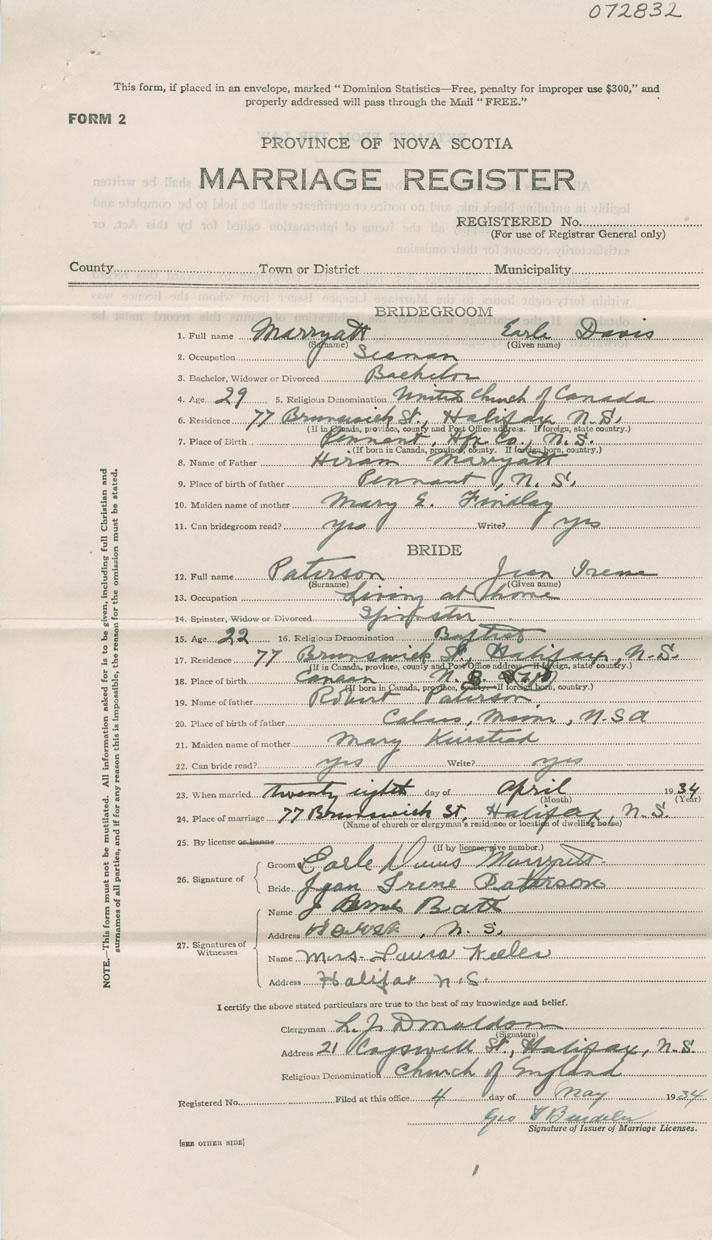 072832
This form, if placed in an envelope, marked "Dominion Statistics—Free, penalty for improper use $300," and
properly addressed will pass through the Mail "FREE."
FORM 2
PROVINCE OF NOVA SCOTIA
MARRIAGE REGISTER
REGISTERED No.
(For use of Registrar General only)
County Town or District Municipality
BRIDEGROOM
1. Full name Marryatt Earle Davis
(Surname) (Given name)
2. Occupation Seaman
3. Bachelor, Widower or Divorced Bachelor
4. Age 29 5. Religious Denomination United Church of Canada
6. Residence 77 Brunswick St., Halifax N.S.
(If in Canada, province, county and Post Office address. If foreign, state country.)
7. Place of Birth Pennant, Hfx Co., N.S.
(If born in Canada, province, county. If foreign born, country.)
8. Name of Father Hiram Marryatt
9. Place of birth of father Pennant, N.S.
10. Maiden name of mother Mary E. Findlay
11. Can bridegroom read? yes Write? yes
BRIDE
12. Full name Paterson Jean Irene
(Surname) (Given name)
13. Occupation Living at home
14. Spinster, Widow or Divorced Spinster
15. Age 22 16. Religious Denomination Baptist
17. Residence 77 Brunswick St., Halifax, N.S.
(If in Canada, province, county and Post Office address. If foreign, state country.)
18. Place of birth Canaan N.B.
(If born in Canada, province, county. If foreign born, country.)
19. Name of father Robert Paterson
20. Place of birth of father Calais, N S A
21. Maiden name of mother Mary Keirstead
22. Can bride read? yes Write? yes
23. When married twenty eighth day of April 1934
(Month) (Year)
24. Place of marriage 77 Brunswick St, Halifax, N.S.
(Name of church or clergyman's residence or location of dwelling house)
25. By license or banns
(If by license, give number.)
26. Signature of
Groom Earle Davis Marryatt
Bride Jean Irene Paterson
27. Signatures of Witnesses
Name J Batt
Address , N.S.
Name Mrs. Laura Keeler
Address Halifax N.S.
I certify the above stated particulars are true to the best of my knowledge and belief.
Clergyman L. J. Donaldson
(Signature)
Address 21 Cogswell St., Halifax, N.S
Religious Denomination Church of England
Registered No. Filed at this office 4 day of May 1934
Geo
Signature of Issuer of Marriage Licenses.
[SEE OTHER SIDE]
NOTE.—This form must not be mutilated. All information asked for is to be given, including full Christian and
surnames of all parties, and if for any reason this is impossible, the reason for the omission must be stated.